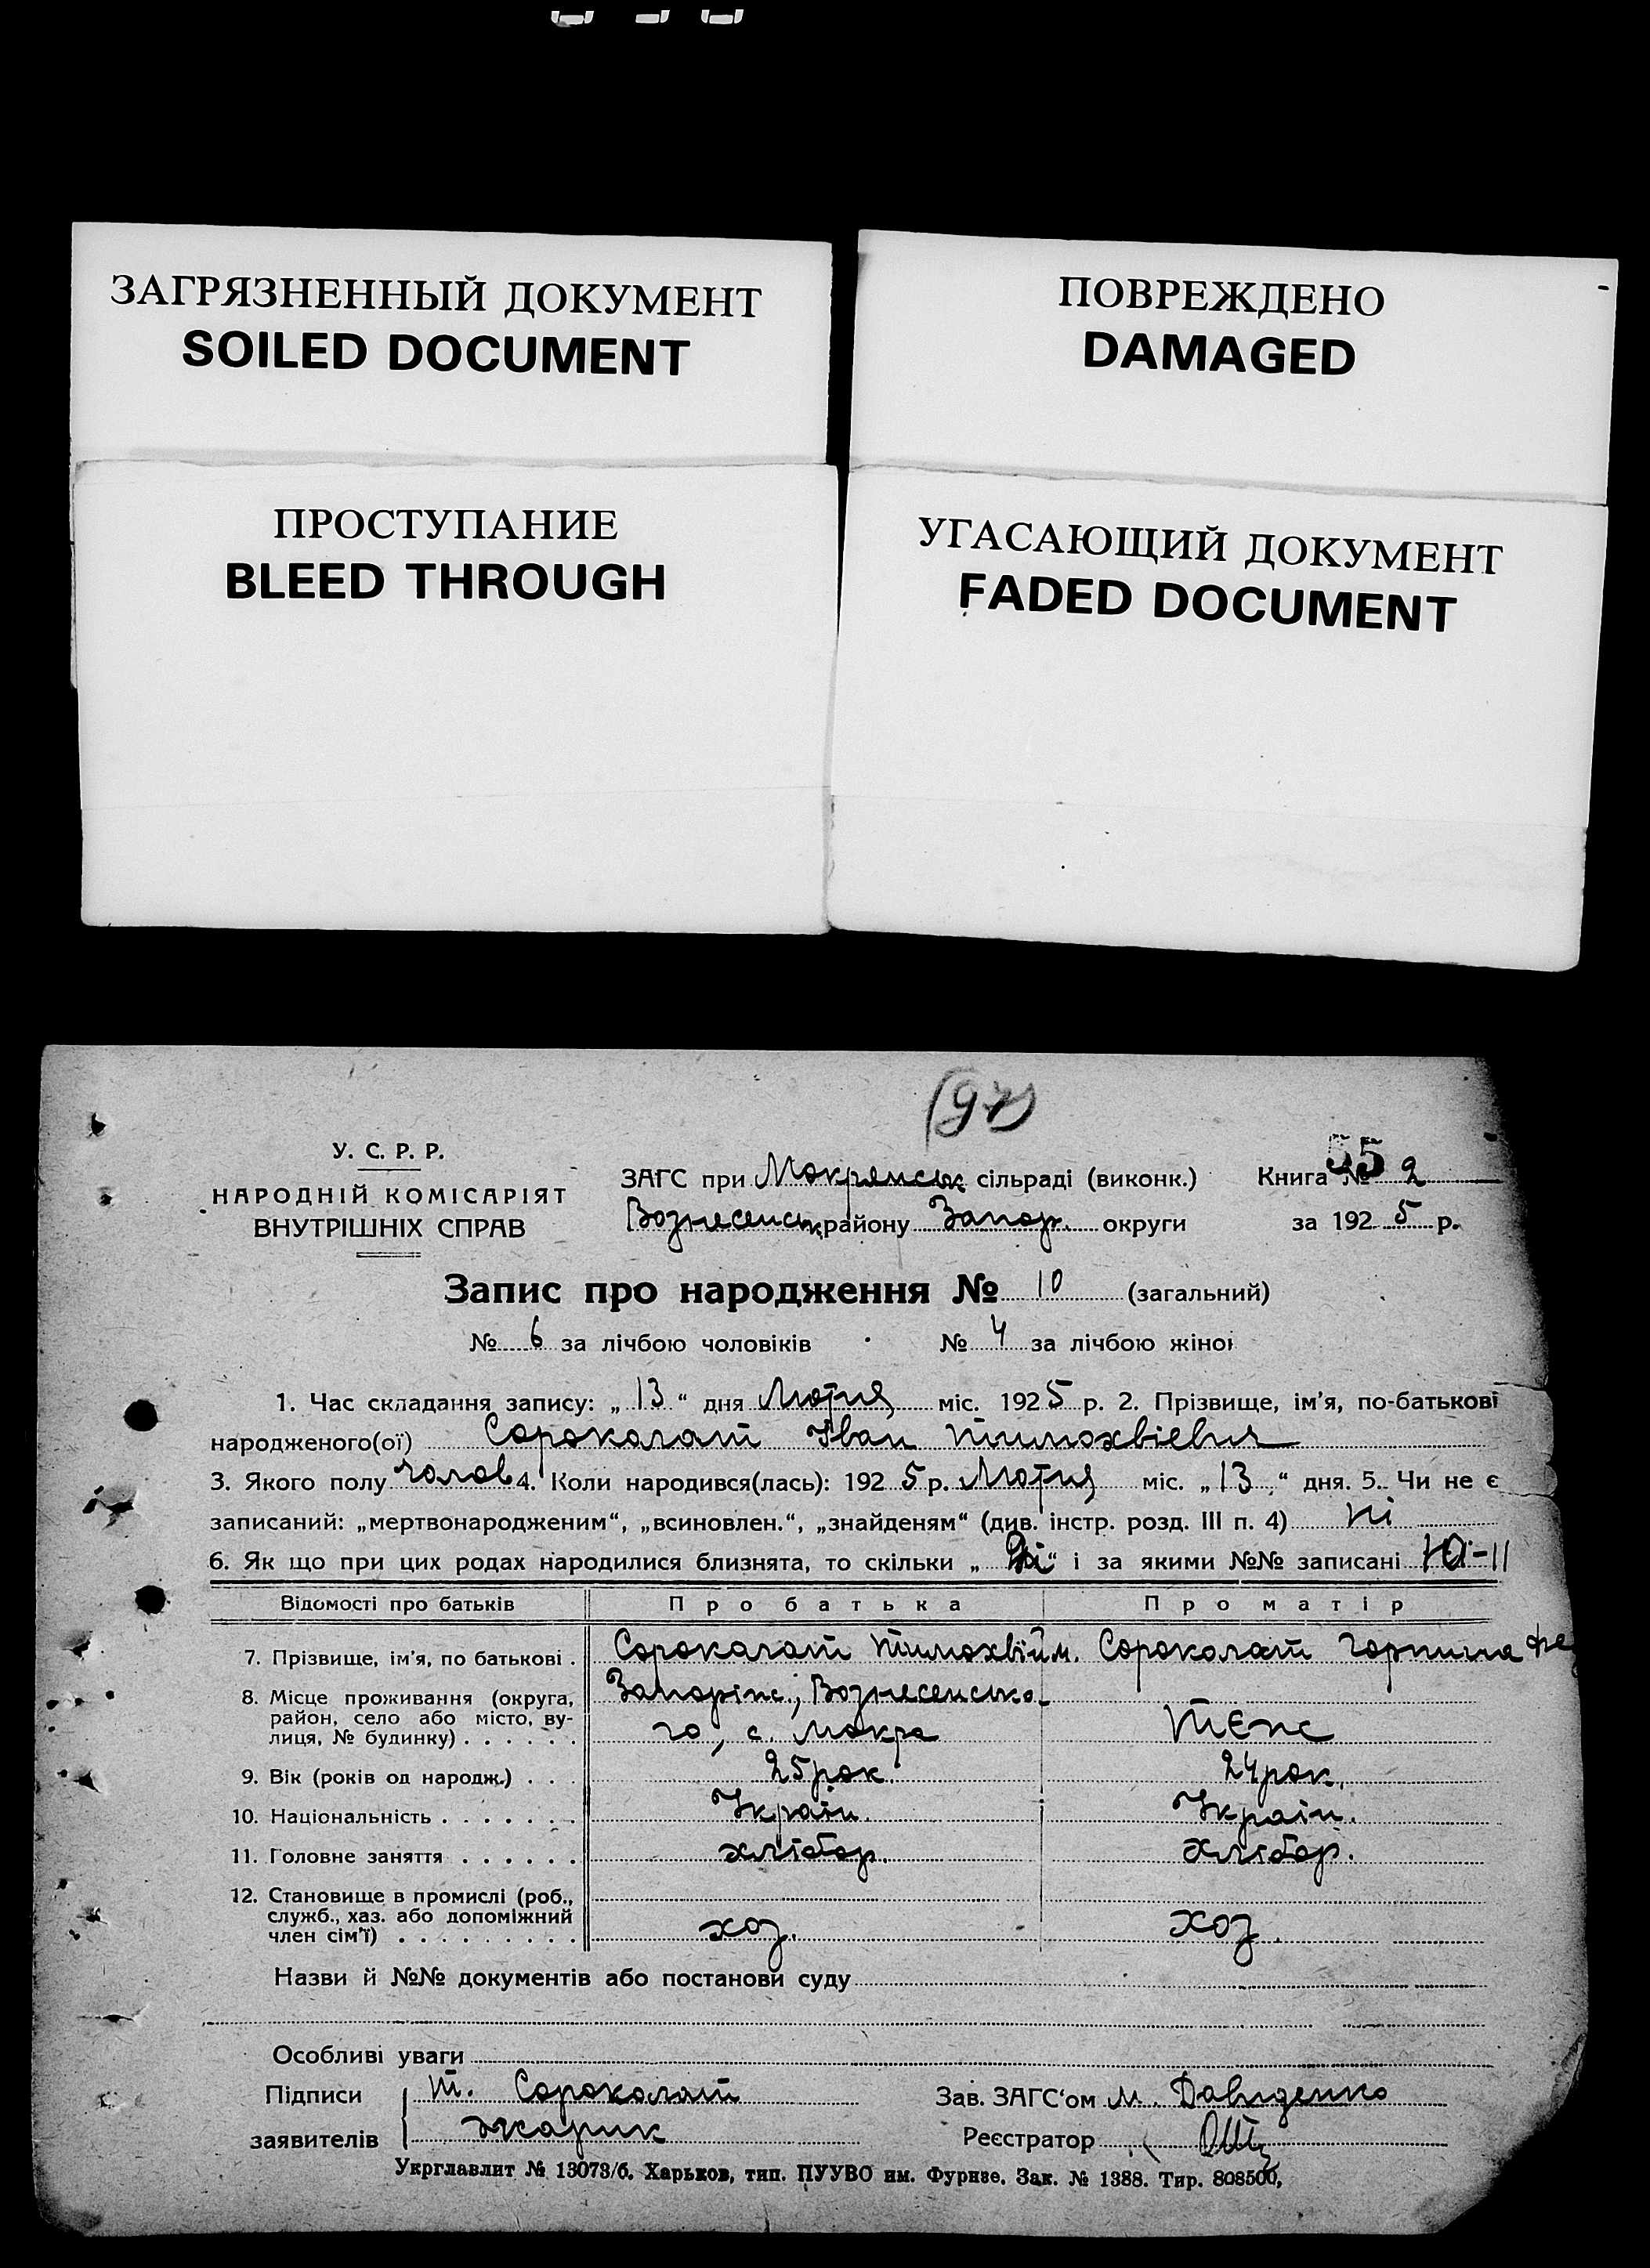 ЗАГРЯЗНЕННЫЙ ДОКУМЕНТ
SOILED DOCUMENT
ПОВРЕЖДЕНО
DAMAGED
ПРОСТУПАНИЕ
BLEED THROUGH
УГАСАЮЩИЙ ДОКУМЕНТ
FADED DOCUMENT
(97)
55
У. С. Р. Р.
НАРОДНІЙ КОМІСАРІЯТ
ВНУТРІШНІХ СПРАВ
ЗАГС при Мокрянськ сільраді (виконк.)
Вознесенськ району Запор. округи
Книга № 2
за 1925 р.
Запис про народження № 10 (загальний)
№ 6 за лічбою чоловіків № 4 за лічбою жінок
1. Час складання запису: „13“ дня Лютня міс. 1925 р. 2. Прізвище, ім'я, по-батькові
народженого(ої) Сороколат Іван Тимохвієвич
3. Якого полу чолов 4. Коли народився(лась): 1925 р. Лютня міс. „13“ дня. 5. Чи не є
записаний: „мертвонародженим“, „всиновлен.“, „знайденям“ (див. інстр. розд. III п. 4) ні
6. Як що при цих родах народилися близнята, то скільки „ “ і за якими №№ записані 10-11
Відомості про батьків Про батька Про матір
7. Прізвище, ім'я, по батькові . Сороколат Тимохвій м. Сороколат Горпина
8. Місце проживання (округа, Запоріж., Вознесенсько-
район, село або місто, ву-
лиця, № будинку) . . . . . . го, с. Мокра теж
9. Вік (років од народж.) . . . 25 рок. 24 рок.
10. Національність . . . . . . . Україн. Україн.
11. Головне заняття . . . . . . хлібор. хлібор.
12. Становище в промислі (роб.,
служб., хаз. або допоміжний
член сім'ї) . . . . . . . . . хоз. хоз.
Назви й №№ документів або постанови суду
Особливі уваги
Підписи Т. Сороколат Зав. ЗАГС'ом М. Давиденко
заявителів Реєстратор
Укрглавлит № 13073/б. Харьков, тип. ПУУВО им. Фурнзе. Зак. № 1388. Тир. 808500,